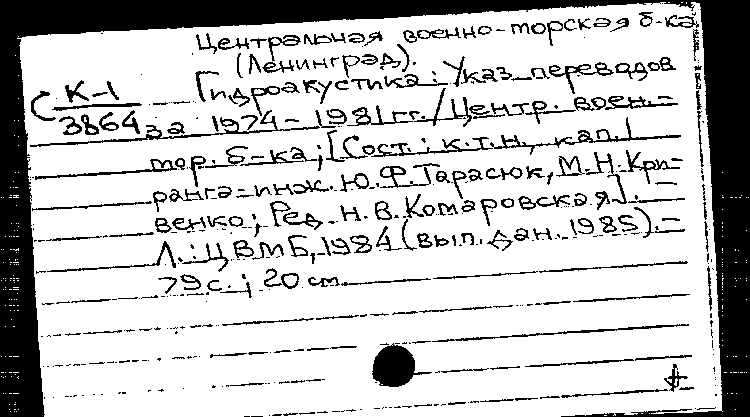 Центральная военно-морская б-ка
(Ленинград).
К-1
3864
Гидроакустика: Указ. переводов
за 1974-1981 гг. / Центр. воен.-
мор. б-ка; [Сост.: к.т.н., кап. 1
ранга-инж. Ю.Ф. Тарасюк, М.Н. Кри-
венко; Ред. Н.В. Комаровская]. -
Л.: ЦВМБ, 1984 (вып. дан. 1985). -
79 с.; 20 см.